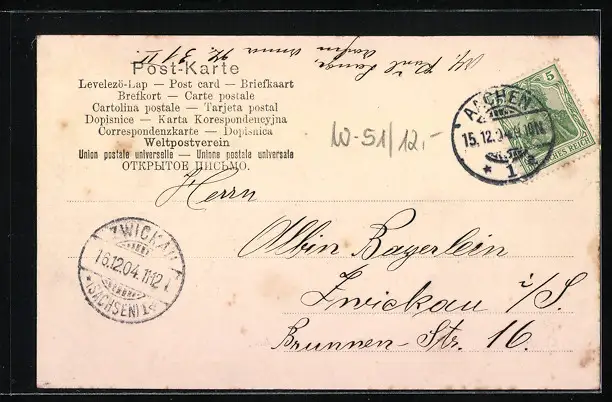 Post-Karte
Levelező-Lap — Post card — Briefkaart
Brefkort — Carte postale
Cartolina postale — Tarjeta postal
Dopisnice — Karta Korespondencyjna
Correspondenzkarte — Dopisnica
Weltpostverein
Union postale universelle — Unione postale universale
ОТКРЫТОЕ ПИСЬМО.
W-51/12,-
AACHEN
15.12.04
* 1
5
REICH
Herrn
Albin Bayerlein
Zwickau i/S.
Brunnen-Str. 16.
ZWICKAU
16.12.04.11-12
(SACHSEN)1